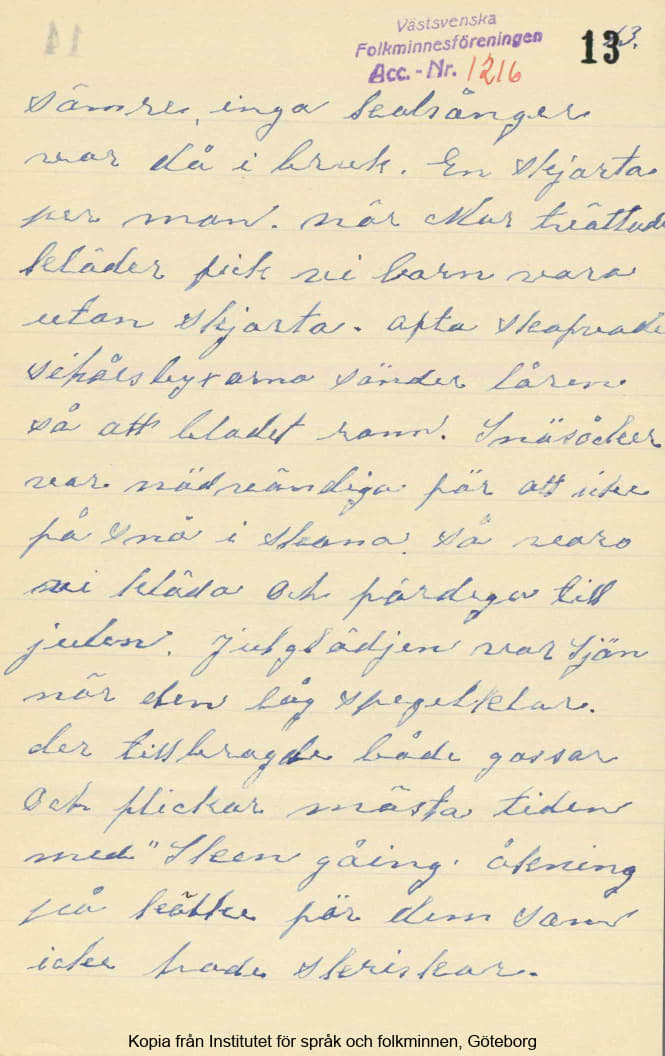 Västsvenska
Folkminnesföreningen
Acc. - Nr. 1216
13 13.
sämre, inga kalsånger
var då i bruk. En skjorta
per man. när Mor tvättade
kläder fick vi barn vara
utan skjorta. ofta skafvade
byxorna sönder låren
så att blodet rann. Snösocker
var nödvändiga för att icke
få snö i skorna. Så voro
vi kläda och färdiga till
julen. Julglädjen var Sjön
när den låg spegelklar.
der tillbragde både gossar
och flickor mästa tiden
med "Skeen gåing. åkning
på kälke för dem som
icke hade skriskor.
Kopia från Institutet för språk och folkminnen, Göteborg